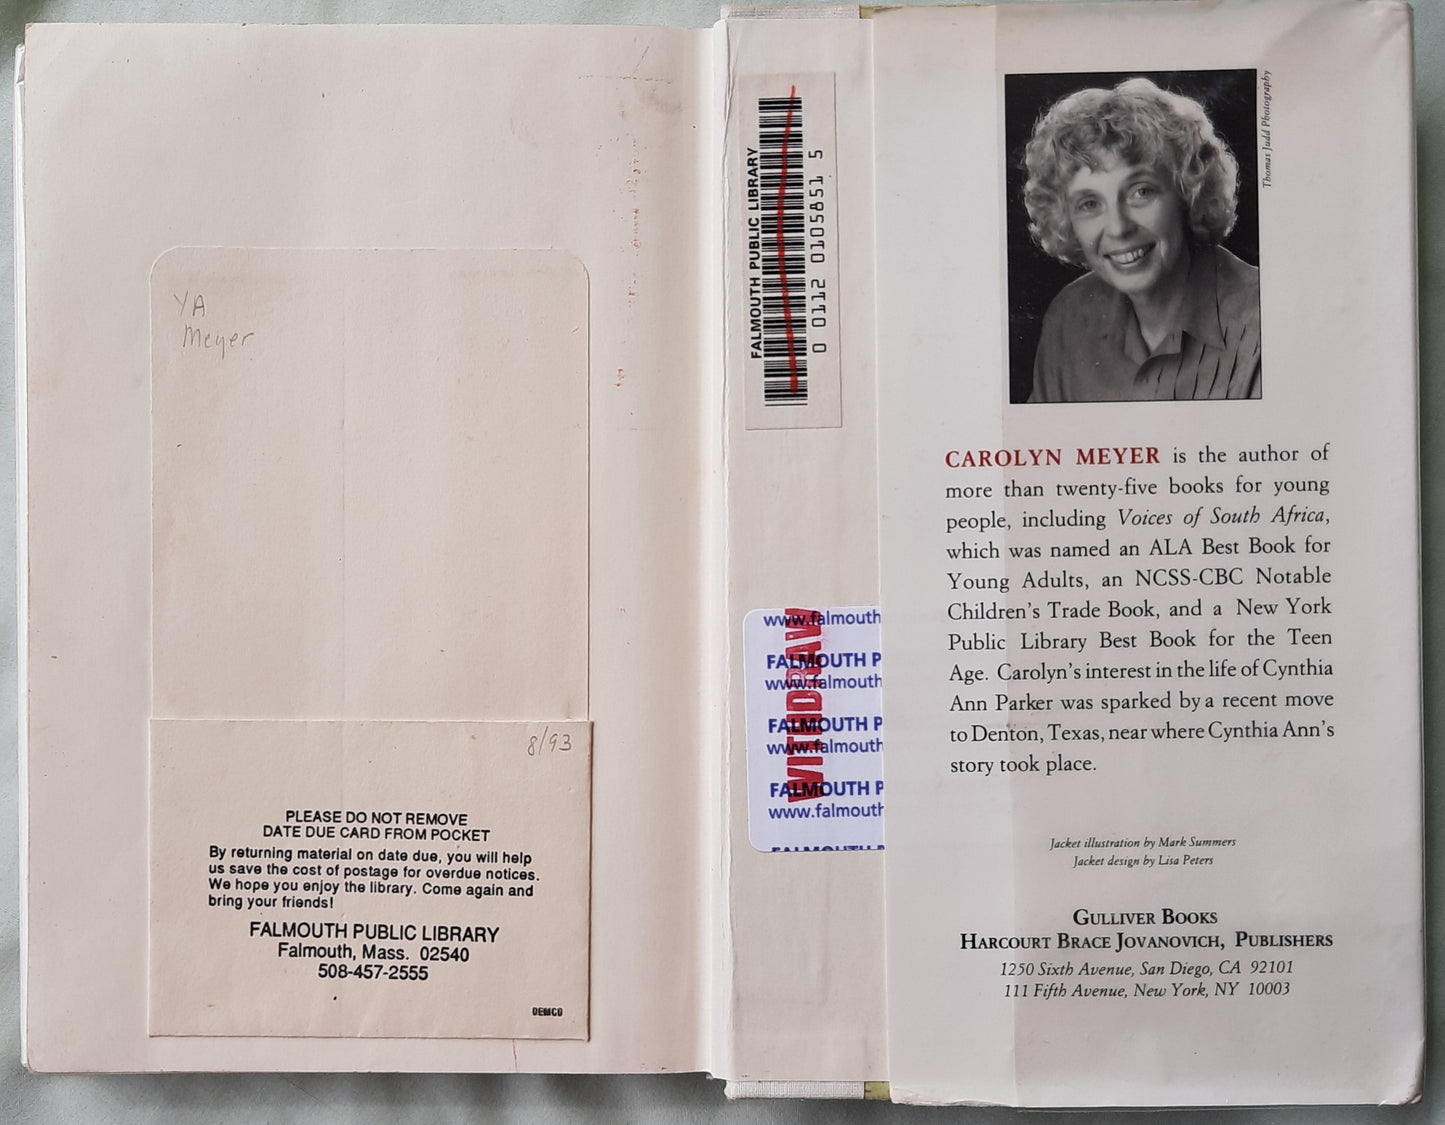 YA
Meyer
8/93
PLEASE DO NOT REMOVE
DATE DUE CARD FROM POCKET
By returning material on date due, you will help
us save the cost of postage for overdue notices.
We hope you enjoy the library. Come again and
bring your friends!
FALMOUTH PUBLIC LIBRARY
Falmouth, Mass. 02540
508-457-2555
DEMCO
FALMOUTH PUBLIC LIBRARY
0 0112 0105851 5
www.falmouth
FALMOUTH P
www.falmouth
FALMOUTH P
www.falmouth
FALMOUTH P
www.falmouth
FALMOUTH P
WITHDRAW
Thomas Judd Photography
CAROLYN MEYER is the author of
more than twenty-five books for young
people, including Voices of South Africa,
which was named an ALA Best Book for
Young Adults, an NCSS-CBC Notable
Children's Trade Book, and a New York
Public Library Best Book for the Teen
Age. Carolyn's interest in the life of Cynthia
Ann Parker was sparked by a recent move
to Denton, Texas, near where Cynthia Ann's
story took place.
Jacket illustration by Mark Summers
Jacket design by Lisa Peters
GULLIVER BOOKS
HARCOURT BRACE JOVANOVICH, PUBLISHERS
1250 Sixth Avenue, San Diego, CA 92101
111 Fifth Avenue, New York, NY 10003